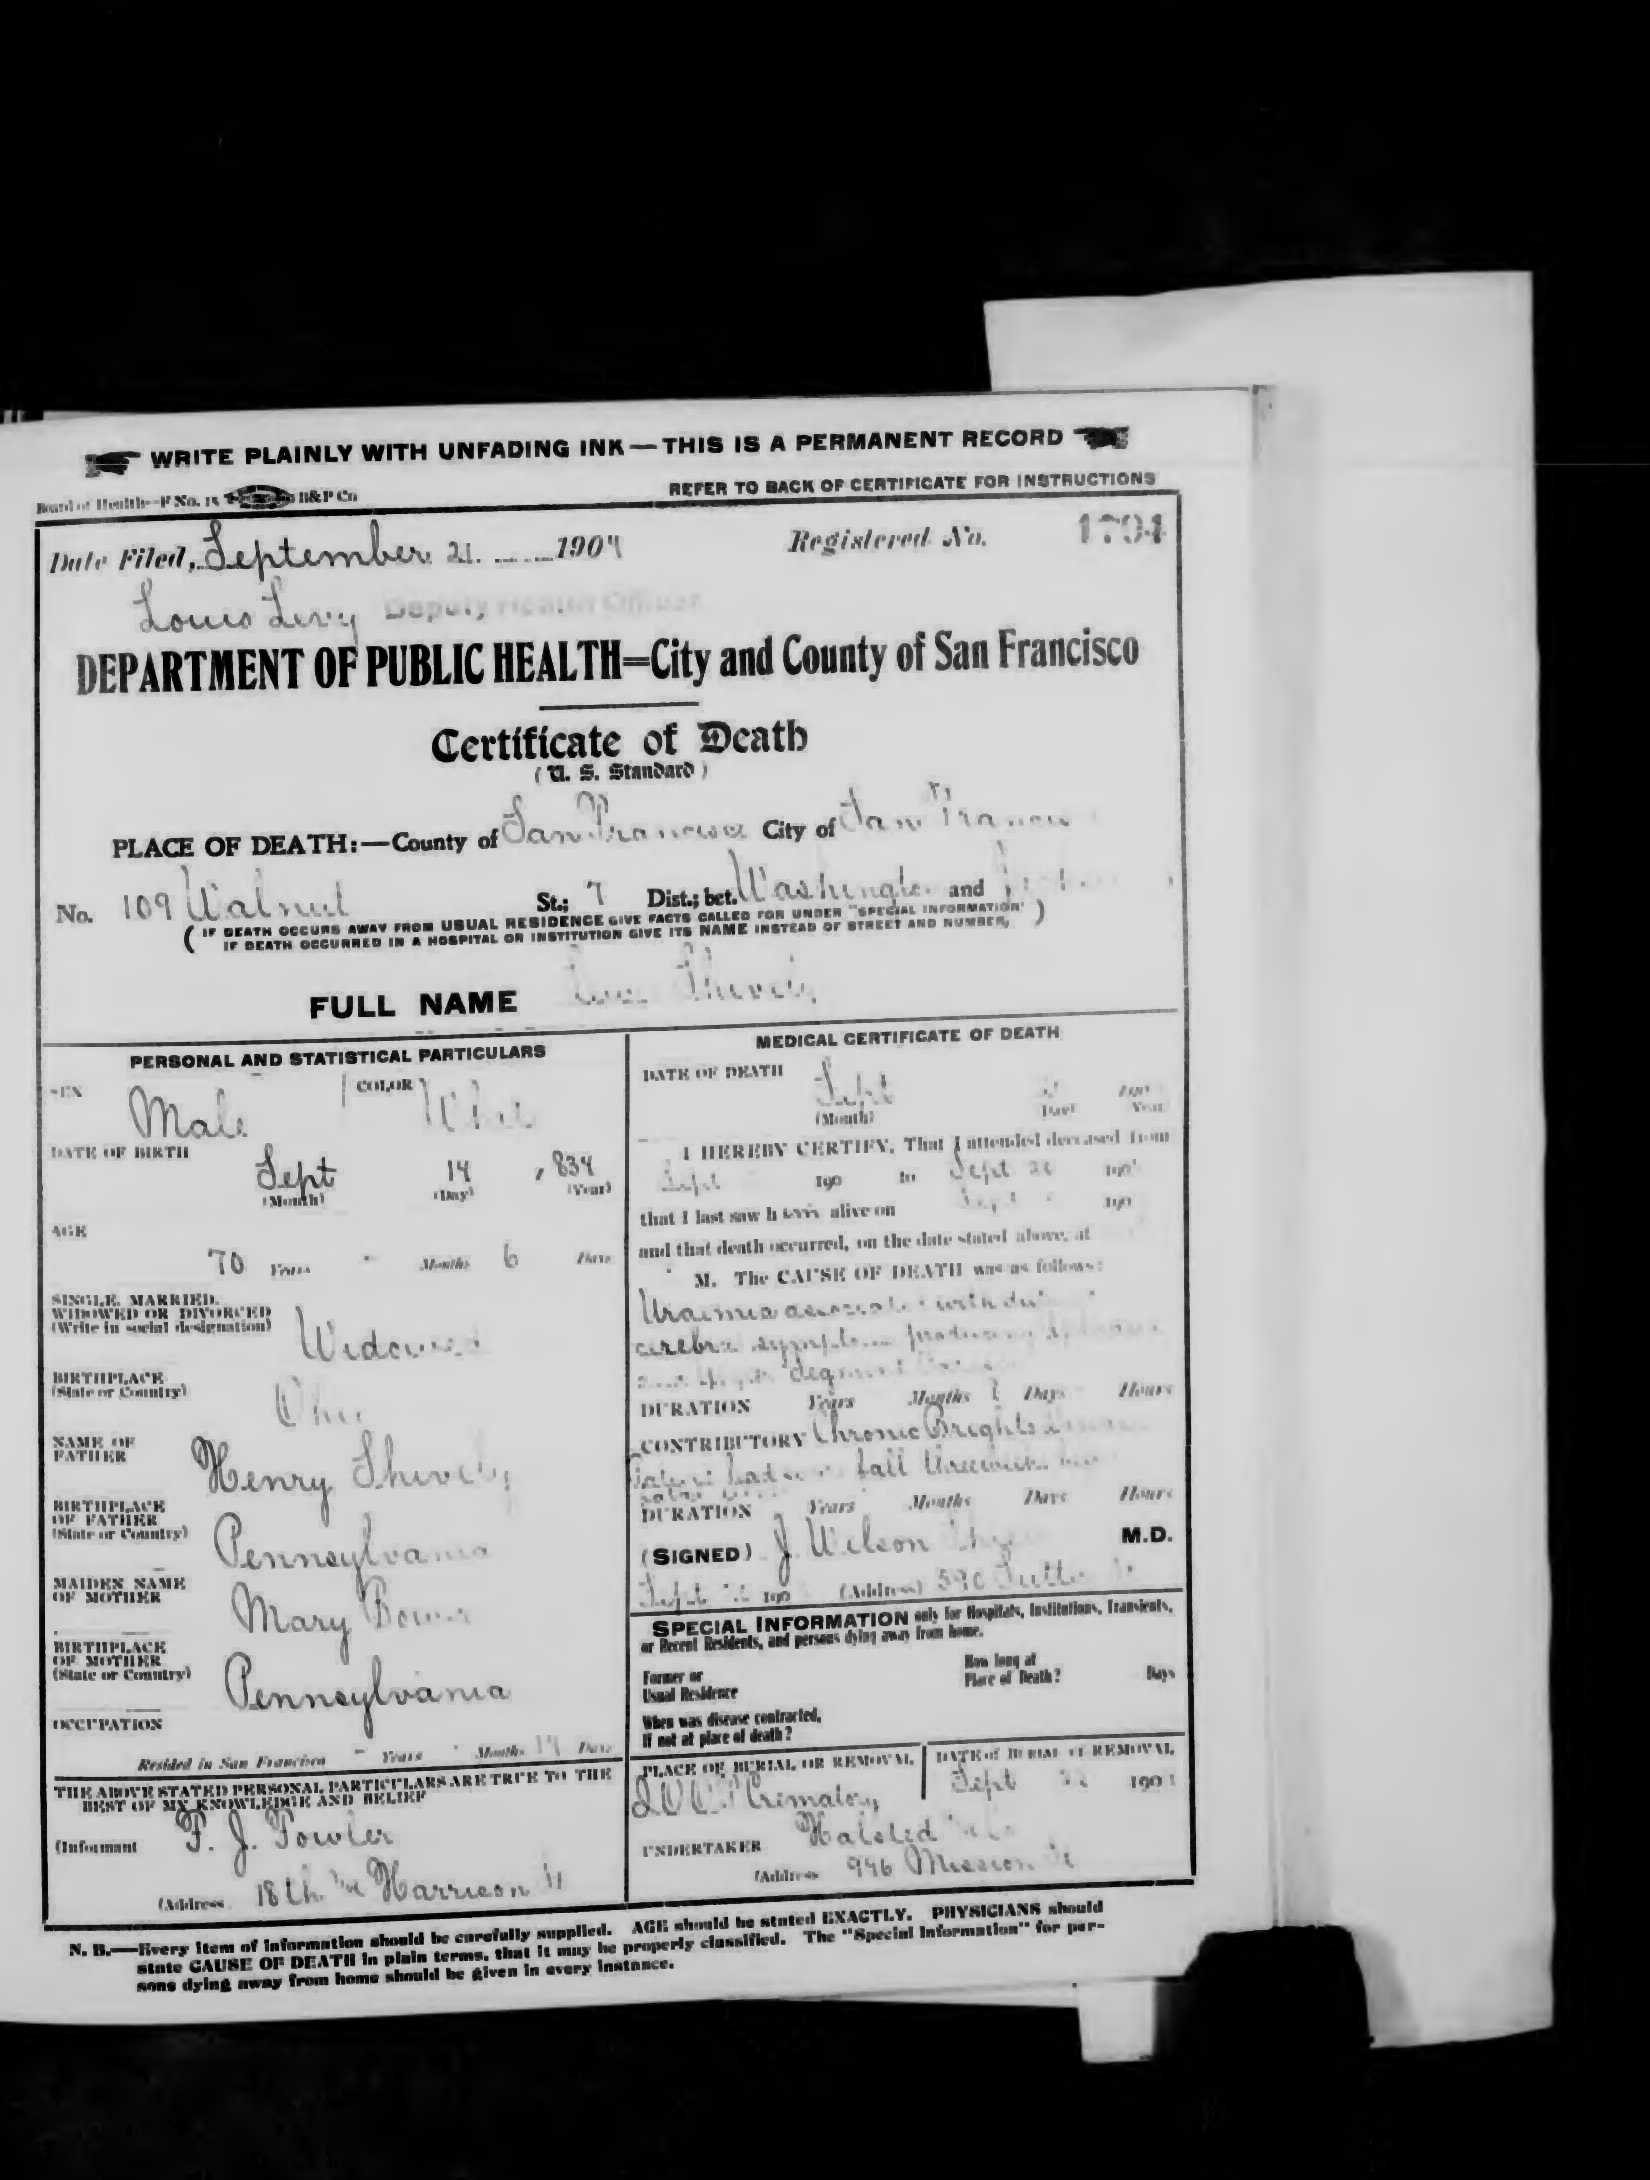 WRITE PLAINLY WITH UNFADING INK — THIS IS A PERMANENT RECORD
Board of Health—F No. 15 B&P Co
REFER TO BACK OF CERTIFICATE FOR INSTRUCTIONS
Date Filed, September 21 1904 Registered No. 1794
Louis Levy Deputy Health Officer
DEPARTMENT OF PUBLIC HEALTH=City and County of San Francisco
Certificate of Death
(U. S. Standard)
PLACE OF DEATH:—County of San Francisco City of San Francisco
No. 109 Walnut St.; 7 Dist.; bet. Washington and
( IF DEATH OCCURS AWAY FROM USUAL RESIDENCE GIVE FACTS CALLED FOR UNDER "SPECIAL INFORMATION" )
IF DEATH OCCURRED IN A HOSPITAL OR INSTITUTION GIVE ITS NAME INSTEAD OF STREET AND NUMBER.
FULL NAME Shively
PERSONAL AND STATISTICAL PARTICULARS
SEX Male COLOR White
DATE OF BIRTH
Sept 14 , 834
(Month) (Day) (Year)
AGE
70 Years - Months 6 Days
SINGLE, MARRIED,
WIDOWED OR DIVORCED
(Write in social designation) Widowed
BIRTHPLACE
(State or Country) Ohio
NAME OF
FATHER Henry Shively
BIRTHPLACE
OF FATHER
(State or Country) Pennsylvania
MAIDEN NAME
OF MOTHER Mary
BIRTHPLACE
OF MOTHER
(State or Country) Pennsylvania
OCCUPATION
Resided in San Francisco - Years - Months Days
THE ABOVE STATED PERSONAL PARTICULARS ARE TRUE TO THE
BEST OF MY KNOWLEDGE AND BELIEF
(Informant F. J. Fowler
(Address 18th Harrison St
MEDICAL CERTIFICATE OF DEATH
DATE OF DEATH
Sept 190
(Month) (Day) (Year)
I HEREBY CERTIFY, That I attended deceased from
Sept 190 to Sept 20 190
that I last saw h alive on Sept 190
and that death occurred, on the date stated above, at
M. The CAUSE OF DEATH was as follows:
Uraemia associated with
cerebral symptoms producing
DURATION Years Months Days Hours
CONTRIBUTORY Chronic Brights
had fall three weeks
DURATION Years Months Days Hours
(SIGNED) J. Wilson M.D.
Sept 190 (Address) 590 Sutter St
SPECIAL INFORMATION only for Hospitals, Institutions, Transients,
or Recent Residents, and persons dying away from home.
Former or
Usual Residence
How long at
Place of Death? Days
When was disease contracted,
If not at place of death?
PLACE OF BURIAL OR REMOVAL
I.O.O.F. Crematory
DATE of BURIAL or REMOVAL
Sept 22 190
UNDERTAKER Halsted
(Address 946 Mission St
N. B.—Every item of information should be carefully supplied. AGE should be stated EXACTLY. PHYSICIANS should
state CAUSE OF DEATH in plain terms, that it may be properly classified. The "Special Information" for per-
sons dying away from home should be given in every instance.